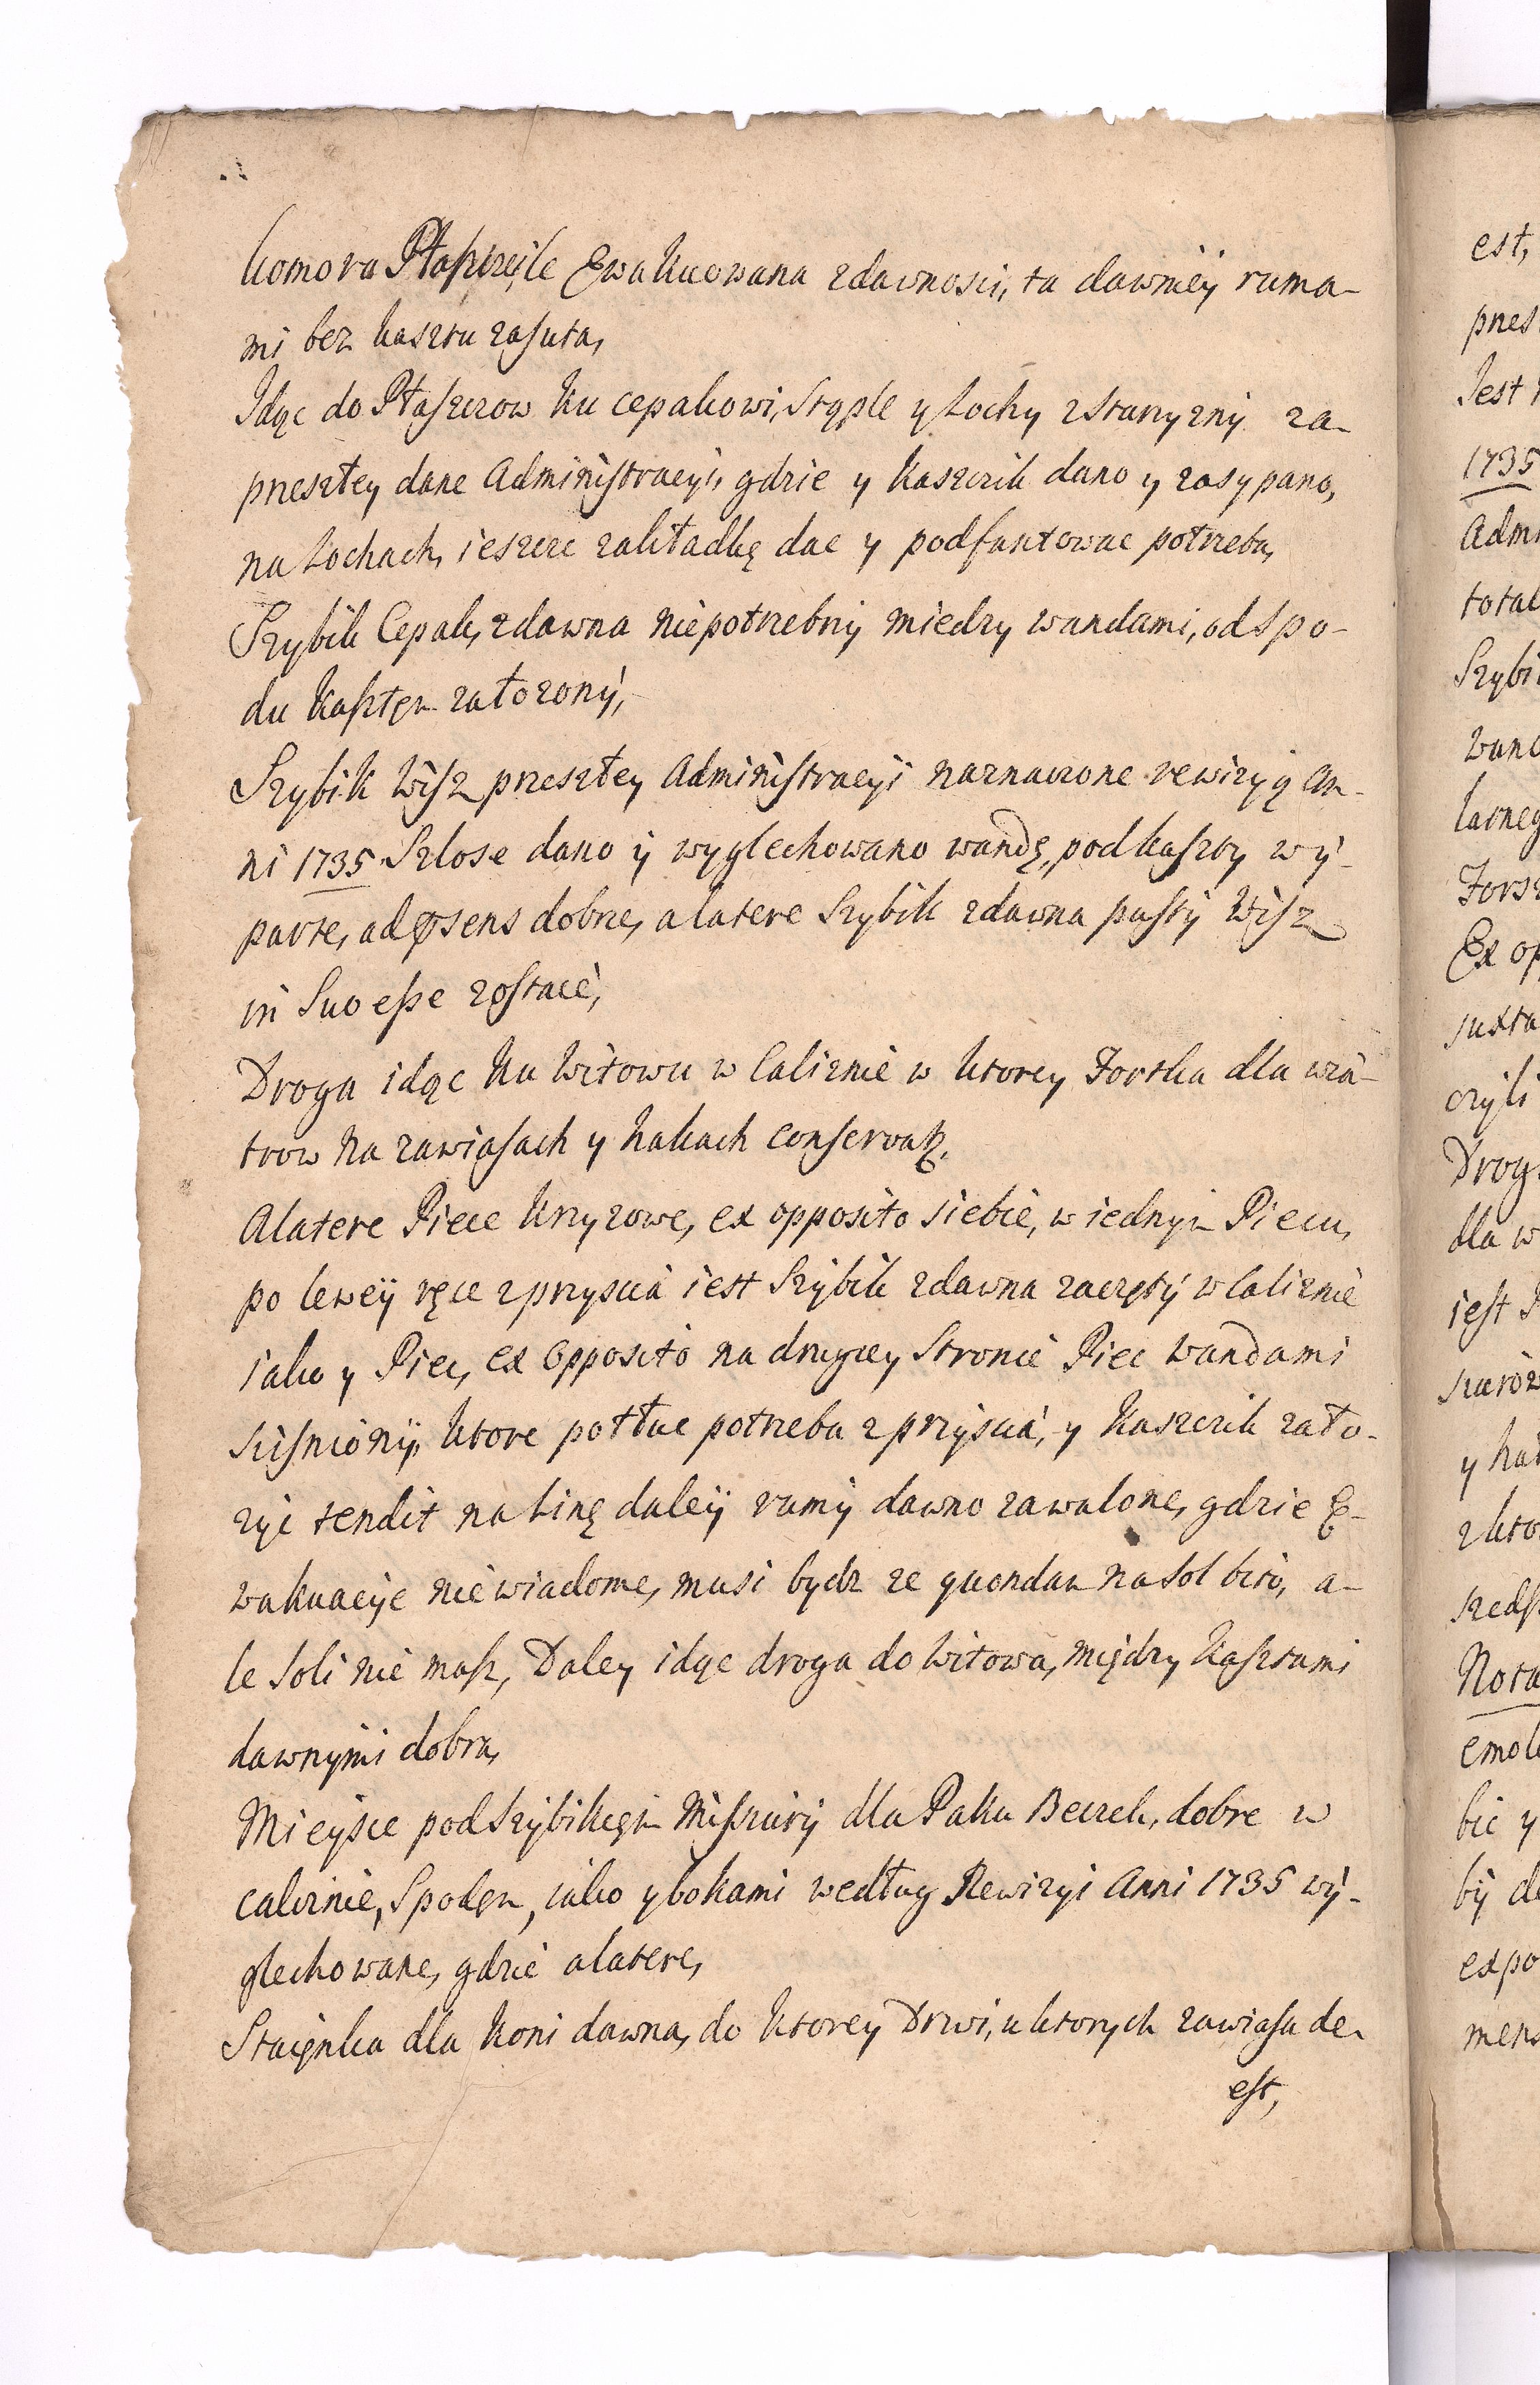 komora Ptaszczyłe Ewakuowana zdawnosci, ta dawniey ruma-
mi bez kasztu zasuta,
Idąc do Ptaszczow ku Cepakowi, Stąple y Łochy zstaryzny za-
przeszłey dane Administracyi, gdzie y Kaszczik dano y zasypano,
na Łochach, ieszcze zakładkę dac y podfastowac potrzeba,
Szybik Cepak, zdawna niepotrzebny miedzy wandami, od spo-
du kasztem załozony,
Szybik Wisz przeszłey Administracyi naznaczone rewizyą An-
ni 1735 Szlose dano y wyglechowano wandę, pod kaszty wy-
parte, adpraesens dobre, a latere Szybik zdawna pusty Wisz
in Suo esse zostaie,
Droga idąc ku Witowu w Caliznie w ktorey Fortka dla wia-
trow na zawiasach y hakach conservatur.
A latere Piece Krzyzowe, ex opposito siebie, w iednym Piecu,
po lewey ręce z przyscia iest Szybik zdawna zaczęty w Caliznie
iako y Piec, ex opposito na drugiey Stronie Piec wandami
scisniony, ktore potłuc potrzeba z przyscia, y Kaszczik zało-
zyc tendit na Linę daley rumy dawno zawalone, gdzie E-
wakuacye niewiadome, musi bydz ze quondam na Sol bito, a-
le Soli nie masz, Daley idąc droga do Witowa, między Kasztami
dawnymi dobra,
Mieysce pod Szybikiem Miszury dla Paku Beczek, dobre w
caliznie, Spodem, iako y bokami według Rewizyi Anni 1735 wy-
glechowane, gdzie a latere,
Staienka dla Koni dawna, do ktorey Drzwi, u ktorych zawiasa de-
est,
est,
1735